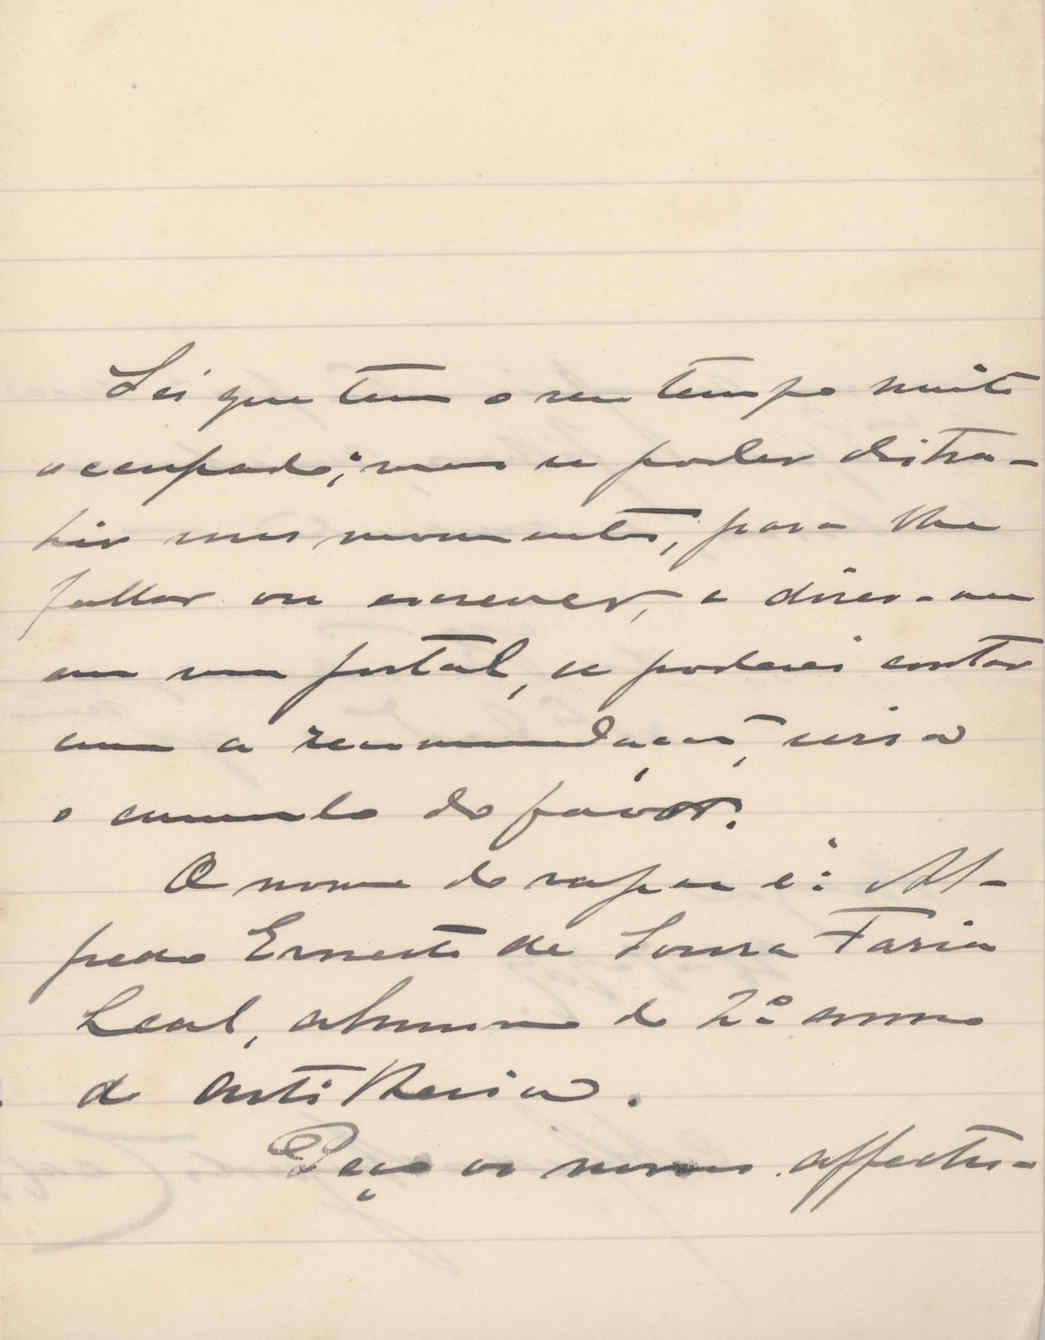 Sei que tem o seu tempo muito
occupado; mas se poder distra-
hir uns momentos, para lhe
fallar ou escrever, e dizer-me
em um postal, se poderei contar
com a recomendação, seria
o cumulo do favor.
O nome do rapaz é: Al-
fredo Ernesto de Sousa Faria
Leal, alumno do 2º anno
de Artilheria.
Peço os nossos affectuo-